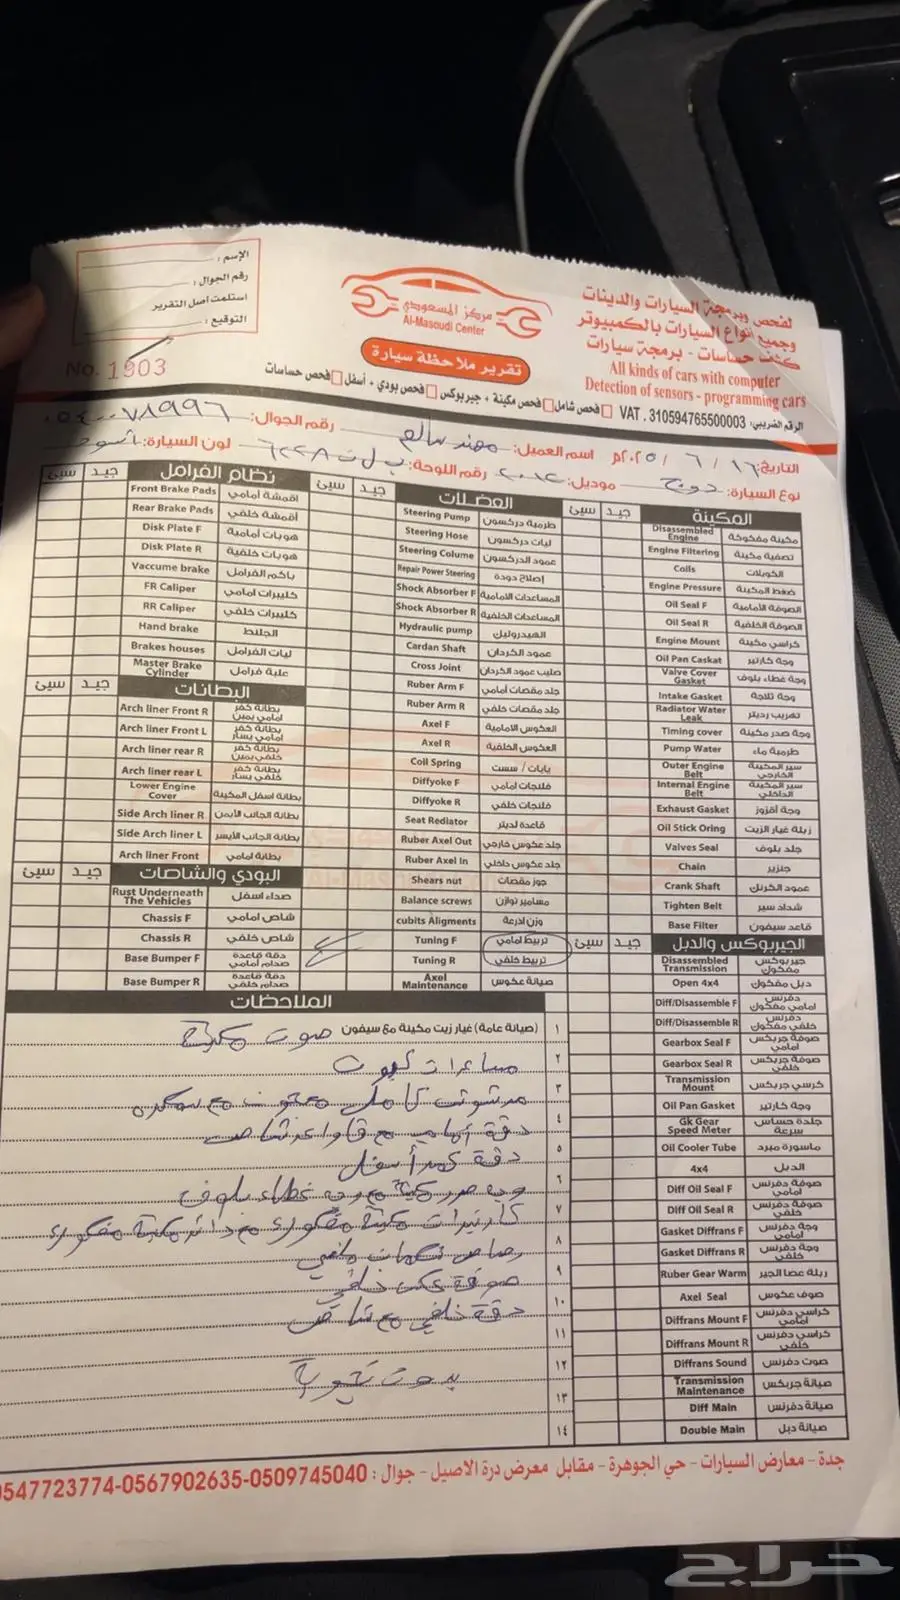 الإسم :
رقم الجوال :
استلمت أصل التقرير
التوقيع :
No. 1903
مركز المسعودي
Al-Masoudi Center
تقرير ملاحظة سيارة
لفحص وبرمجة السيارات والدينات
وجميع أنواع السيارات بالكمبيوتر
كشف حساسات - برمجة سيارات
All kinds of cars with computer
Detection of sensors - programming cars
الرقم الضريبي: VAT . 310594765500003
فحص شامل فحص مكينة + جيربوكس فحص بودي + أسفل فحص حساسات
التاريخ: ١٦ / ٦ / ٢٠٢٥م اسم العميل: مهند سالم رقم الجوال:
نوع السيارة: دوج موديل: ٢٠١٤ رقم اللوحة: لون السيارة: اسود
المكينة جيد سيئ
مكينة مفكوكة Disassembled Engine
تصفية مكينة Engine Filtering
الكويلات Coils
ضغط المكينة Engine Pressure
الصوفة الأمامية Oil Seal F
الصوفة الخلفية Oil Seal R
كراسي مكينة Engine Mount
وجة كارتير Oil Pan Caskat
وجة غطاء بلوف Valve Cover Gasket
وجة ثلاجة Intake Gasket
تهريب رديتر Radiator Water Leak
وجة صدر مكينة Timing cover
طرمبة ماء Pump Water
سير المكينة الخارجي Outer Engine Belt
سير المكينة الداخلي Internal Engine Belt
وجة أقزوز Exhaust Gasket
ربلة غيار الزيت Oil Stick Oring
جلد بلوف Valves Seal
جنزير Chain
عمود الكرنك Crank Shaft
شداد سير Tighten Belt
قاعد سيفون Base Filter
الجيربوكس والدبل جيد سيئ
جيربوكس مفكوك Disassembled Transmission
دبل مفكوك Open 4x4
دفرنس أمامي مفكوك Diff/Disassemble F
دفرنس خلفي مفكوك Diff/Disassemble R
صوفة جربكس أمامي Gearbox Seal F
صوفة جربكس خلفي Gearbox Seal R
كرسي جربكس Transmission Mount
وجة كارتير Oil Pan Gasket
جلدة حساس سرعة Gk Gear Speed Meter
ماسورة مبرد Oil Cooler Tube
الدبل 4x4
صوفة دفرنس أمامي Diff Oil Seal F
صوفة دفرنس خلفي Diff Oil Seal R
وجة دفرنس أمامي Gasket Diffrans F
وجة دفرنس خلفي Gasket Diffrans R
ربلة عصا الجير Ruber Gear Warm
صوف عكوس Axel Seal
كراسي دفرنس أمامي Diffrans Mount F
كراسي دفرنس خلفي Diffrans Mount R
صوت دفرنس Diffrans Sound
صيانة جربكس Transmission Maintenance
صيانة دفرنس Diff Main
صيانة دبل Double Main
العضلات جيد سيئ
طرمبة دركسون Steering Pump
ليات دركسون Steering Hose
عمود الدركسون Steering Colume
إصلاح دودة Repair Power Steering
المساعدات الامامية Shock Absorber F
المساعدات الخلفية Shock Absorber R
الهيدروليك Hydraulic pump
عمود الكردان Cardan Shaft
صليب عمود الكردان Cross Joint
جلد مقصات أمامي Ruber Arm F
جلد مقصات خلفي Ruber Arm R
العكوس الامامية Axel F
العكوس الخلفية Axel R
يايات / سست Coil Spring
فلنجات امامي Diffyoke F
فلنجات خلفي Diffyoke R
قاعدة لديتر Seat Rediator
جلد عكوس خارجي Ruber Axel Out
جلد عكوس داخلي Ruber Axel In
جوز مقصات Shears nut
مسامير توازن Balance screws
وزن اذرعة cubits Aligments
تربيط امامي Tuning F
تربيط خلفي Tuning R
صيانة عكوس Axel Maintenance
نظام الفرامل جيد سيئ
اقمشة أمامي Front Brake Pads
أقمشة خلفي Rear Brake Pads
هوبات أمامية Disk Plate F
هوبات خلفية Disk Plate R
باكم الفرامل Vaccume brake
كليبرات امامي FR Caliper
كليبرات خلفي RR Caliper
الجلنط Hand brake
ليات الفرامل Brakes houses
علبة فرامل Master Brake Cylinder
البطانات جيد سيئ
بطانة كفر امامي يمين Arch liner Front R
بطانة كفر امامي يسار Arch liner Front L
بطانة كفر خلفي يمين Arch liner rear R
بطانة كفر خلفي يسار Arch liner rear L
بطانة اسفل المكينة Lower Engine Cover
بطانة الجانب الأيمن Side Arch liner R
بطانة الجانب الأيسر Side Arch liner L
بطانة امامي Arch liner Front
البودي والشاصات جيد سيئ
صداء اسفل Rust Underneath The Vehicles
شاص امامي Chassis F
شاص خلفي Chassis R
دقة قاعدة صدام أمامي Base Bumper F
دقة قاعدة صدام خلفي Base Bumper R
الملاحظات
١ (صيانة عامة) غيار زيت مكينة مع سيفون صوت مكينة
٢ مساعدات كبوت
٣ مرشوش كامل معجون مع سمكره
٤ دقة أمامي مع قواعد شاص
٥ دقة أسفل
٦ وجه صدر مكينة مع وجه غطاء بلوف
٧ كارتيرات مكينة مفكوك مع مكينة مفكوك
٨ خلفي
٩ صوفة عكس خلفي
١٠ دقة خلفي مع شاص
١١
١٢ بدون
١٣
١٤
جدة - معارض السيارات - حي الجوهرة - مقابل معرض درة الاصيل - جوال : 0509745040-0567902635-0547723774
حراج